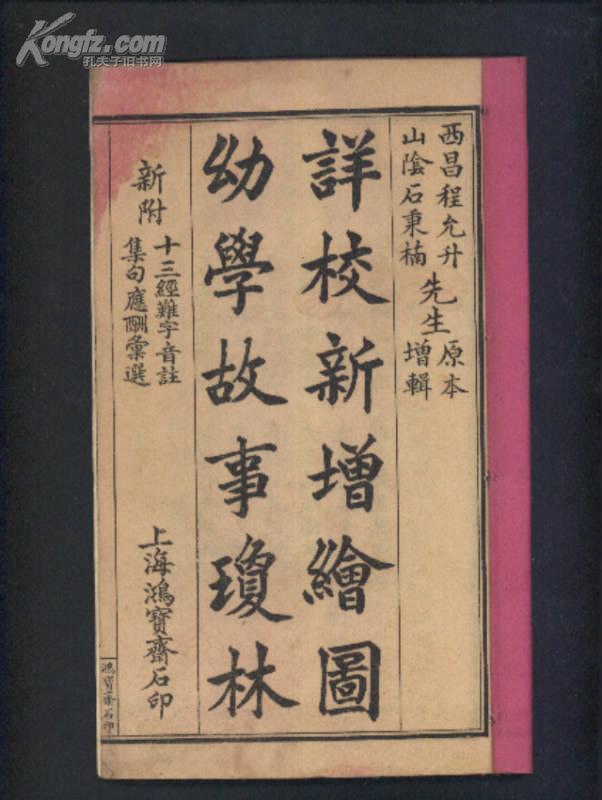 Kongfz.com
孔夫子旧书网
西昌程允升
山陰石秉楠
先生
原本
增輯
詳校新增繪圖
幼學故事瓊林
新附
十三經難字音註
集句應酬彙選
上海鴻寶齋石印
鴻寶齋石印